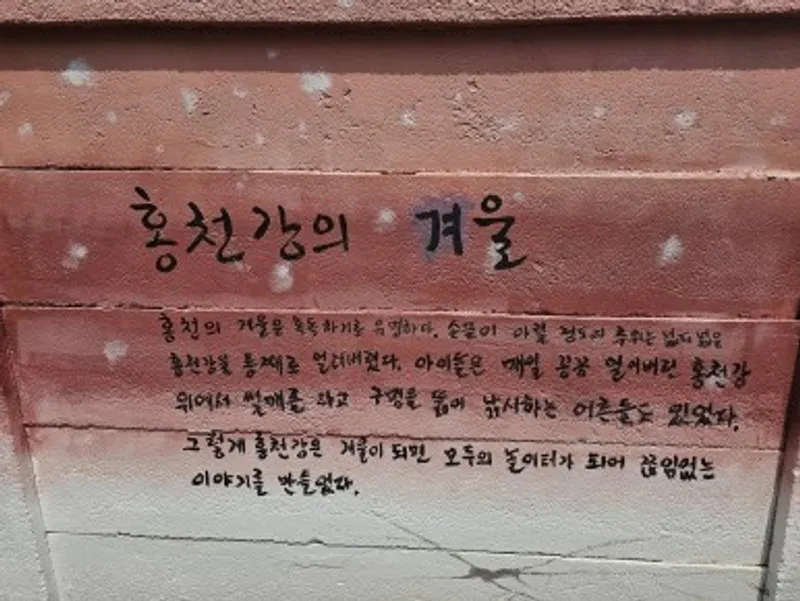 홍천강의 겨울
홍천의 겨울은 혹독하기로 유명하다. 손끝이 아릴 정도의 추위는 넓디 넓은
홍천강을 통째로 얼려버렸다. 아이들은 매일 꽁꽁 얼어버린 홍천강
위에서 썰매를 타고 구멍을 뚫어 낚시하는 어른들도 있었다.
그렇게 홍천강은 겨울이 되면 모두의 놀이터가 되어 끊임없는
이야기를 만들었다.